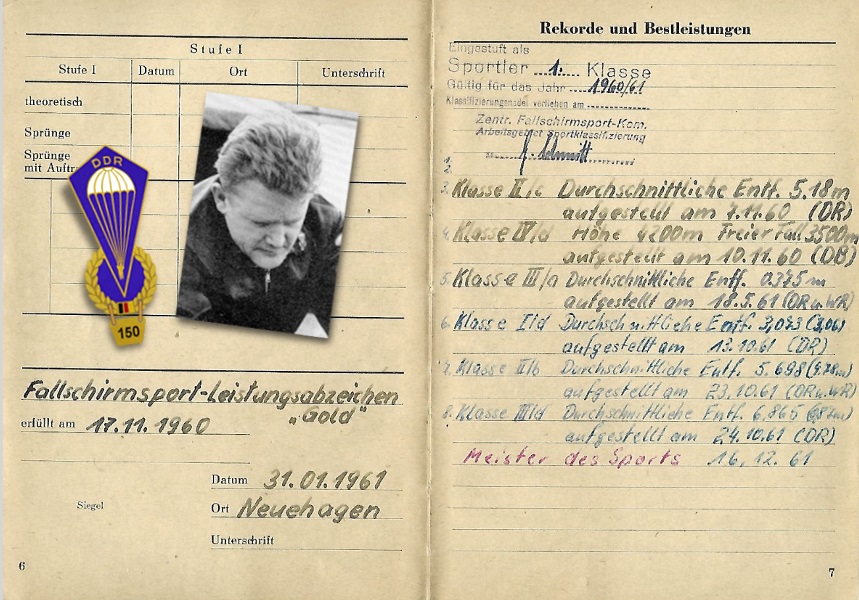 Stufe I
Stufe I Datum Ort Unterschrift
theoretisch
Sprünge
Sprünge
mit Auftr
DDR
150
Fallschirmsport-Leistungsabzeichen
„Gold"
erfüllt am 17.11.1960
Datum 31.01.1961
Siegel
Ort Neuehagen
Unterschrift
6
Rekorde und Bestleistungen
Eingestuft als
Sportler 1. Klasse
Gültig für das Jahr 1960/61
Klassifizierungsnadel verliehen am
Zentr. Fallschirmsport-Kom.
Arbeitsgebiet Sportklassifizierung
1.
2.
3. Klasse II/c Durchschnittliche Entf. 5.18m
aufgestellt am 7.11.60 (DR)
4. Klasse IV/d Höhe 4200m Freier Fall 3500m
aufgestellt am 10.11.60 (DR)
5. Klasse III/a Durchschnittliche Entf. 0.375m
aufgestellt am 18.5.61 (DR u. WR)
6. Klasse I/d Durchschnittliche Entf. 3,073 (3,06)
aufgestellt am 13.10.61 (DR)
7. Klasse II/b Durchschnittliche Entf. 5.698
aufgestellt am 23.10.61 (DR u. WR)
8. Klasse III/d Durchschnittliche Entf. 6.865
aufgestellt am 24.10.61 (DR)
Meister des Sports 16.12.61
7